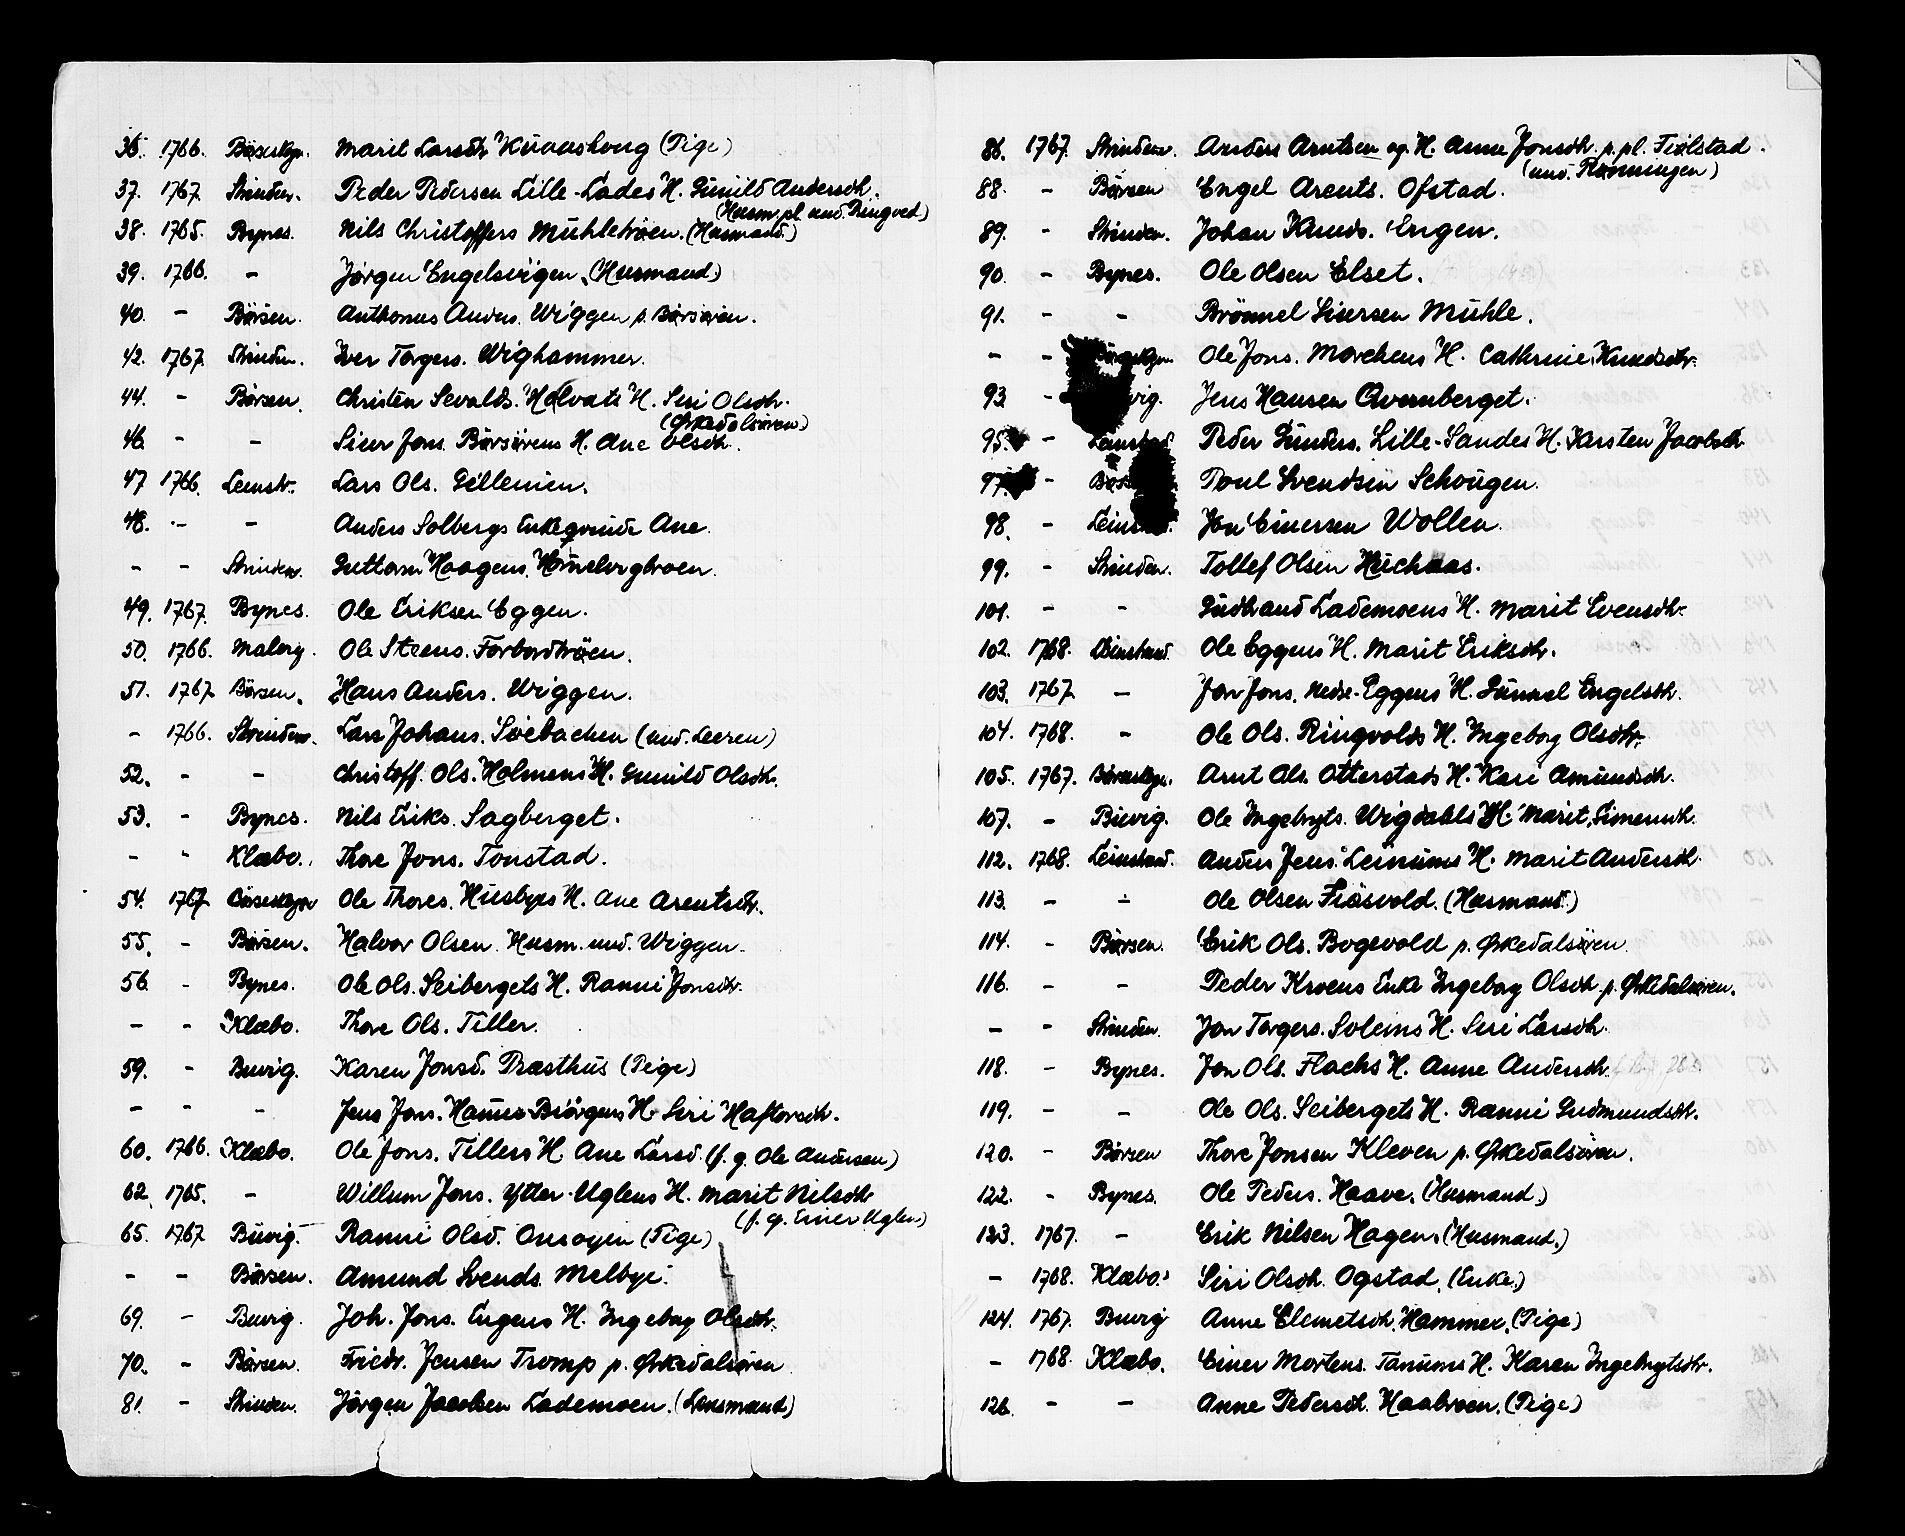 36. 1766. Börseskgn. Marit Larsdtr Kuaashoug (Pige)
37. 1767. Strinden. Peder Pedersen Lille-Lades H. Gunild Andersdtr.
38. 1765. Bynes. Nils Christoffers Mühletröen. (Husmand.) (Husm.pl. und. Ringved)
39. 1766. - Jørgen Engelsvigen. (Husmand.)
40. - Börsen. Anthonus Anders. Wiggen p. Börsören.
42. 1767. Strinden. Iver Torgers. Wighammer.
44. - Börsen. Christen Sevalds. Holvats H. Siri Olsdtr.
46. - - Siver Jons. Börsörens H. Ane Olsdtr. (Ørkedalsören)
47 1766. Leinstr. Lars Ols. Gillenien.
48. - - Anders Solbergs Enkeqvinde Ane.
- - Strinden. Guttorm Haagens. Hornebergtroen.
49. 1767. Bynes. Ole Eriksen Eggen.
50. 1766. Malvig. Ole Steens. Forbordtröen.
51. 1767 Börsen. Hans Anders. Wiggen.
- 1766. Strinden. Lars Johans. Svebacken (und. Leeren)
52. - - Christoff. Ols. Holmens H. Gunild Olsdtr.
53. - Bynes. Nils Eriks. Sagberget.
- - Klæbo. Thore Jons. Tonstad.
54. 1767 Börseskgn Ole Thores. Husbyes H. Ane Arentsdtr.
55. - Börsen. Halvor Olsen Husm. und. Wiggen.
56. - Bynes. Ole Ols. Seibergets H. Ranni Jonsdtr.
- - Klæbo. Thore Ols. Tiller.
59. - Buvig. Karen Jonsd. Præsthus (Pige)
- - - Jens Jons. Hammer-Biörgens H. Siri Haftorsdtr.
60. 1766. Klæbo. Ole Jons. Tillers H. Ane Larsd. (f. g. Ole Andersen)
62. 1765. - Willum Jons. Ytter-Uglens H. Marit Nilsdtr
65. 1767 Buvig. Ranni Olsd. Onsøyen (Pige) (f. g. Einer Uglen)
- - Börsen. Amund Svends. Melbye.
69. - Buvig. Joh. Jons. Engens H. Ingeborg Olsdtr.
70. - Börsen. Fridr. Jensen Tromp p. Ørkedalsören
81. - Strinden. Jörgen Jacobsen Lademoen. (Lensmand)
86. 1767. Strinden. Anders Arntsen og H. Anne Jonsdtr. p. pl. Fiölstad.
88. - Börsen Engel Arents. Ofstad. (und. Rønningen)
89. - Strinden. Johan Knuds. Engen.
90. - Bynes. Ole Olsen Elset.
91. - - Brönnel Siversen Mühle.
- - Ole Jons. Morckens H. Cathrine Knudsdtr.
93. - Jens Hansen Qvernberget.
95. - Leinstrand Peder Gunders. Lille-Sandes H. Karsten Jacobsdtr
97. - Poul Svendsen Schougen.
98. - Jon Einersen Wollen.
99. - Strinden. Tollef Olsen Huchaas.
101. - - Gudbrand Lademoens H. Marit Evensdtr.
102. 1768. Leinstrand. Ole Eggens H. Marit Eriksdtr.
103. 1767 - Jon Jons. Nedre-Eggens H. Gunnel Engelsdtr.
104. 1768. - Ole Ols. Ringvolds H. Ingeborg Olsdtr.
105. 1767. Börseskgn. Arnt Ols. Otterstads H. Kari Amundsdtr.
107. - Buvig. Ole Ingebrgts. Wigdahls H. Marit Simensdtr.
112. 1768. Leinstrand. Anders Jens. Leinums H. Marit Andersdtr.
113. - - Ole Olsen Fiösvold. (Husmand.)
114. - Börsen. Erik Ols. Bogevold p. Ørkedalsören.
116. - - Peder Kroens Enke Ingeborg Olsdtr. p. Ørkedalsören.
- - Strinden. Jon Torgers. Solems H. Siri Larsdtr.
118. - Bynes. Jon Ols. Flachs H. Anne Andersdtr.
119. - - Ole Ols. Seibergets H. Ranni Gudmundsdtr.
120. - Börsen Thore Jonsen Kleven p. Ørkedalsören.
122. - Bynes. Ole Peders. Haave. (Husmand.)
123. 1767. - Erik Nilsen Hagen. (Husmand.)
- 1768. Klæbo. Siri Olsdtr. Ogstad. (Enke.)
124. 1767. Buvig Anne Clemetsdtr. Hammer. (Pige)
- 1768. Klæbo. Einer Mortens. Tanums H. Karen Ingebrigtsdtr.
126. - - Anne Pedersdtr. Haabroen. (Pige)